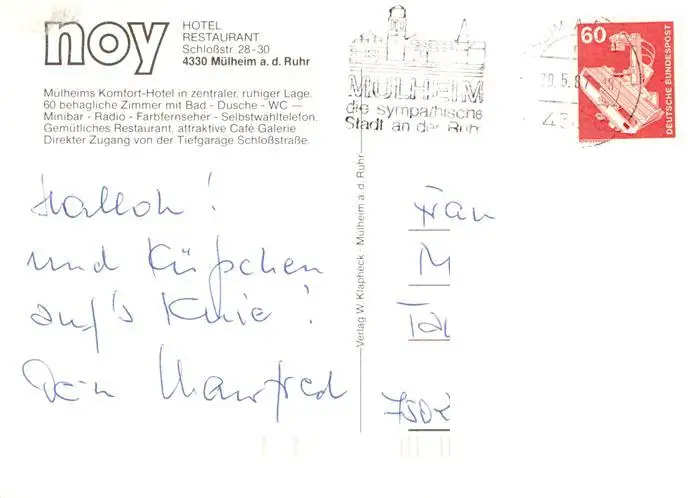 noy
HOTEL
RESTAURANT
Schloßstr. 28-30
4330 Mülheim a. d. Ruhr
Mülheims Komfort-Hotel in zentraler, ruhiger Lage.
60 behagliche Zimmer mit Bad - Dusche - WC —
Minibar - Radio - Farbfernseher - Selbstwähltelefon.
Gemütliches Restaurant, attraktive Café Galerie
Direkter Zugang von der Tiefgarage Schloßstraße.
MÜLHEIM
die sympathische
Stadt an der Ruhr
60
DEUTSCHE BUNDESPOST
Verlag W. Klapheck · Mülheim a. d. Ruhr
Halloh!
und Küßchen
auf's Knie!
Dein Manfred
Frau
M
7502